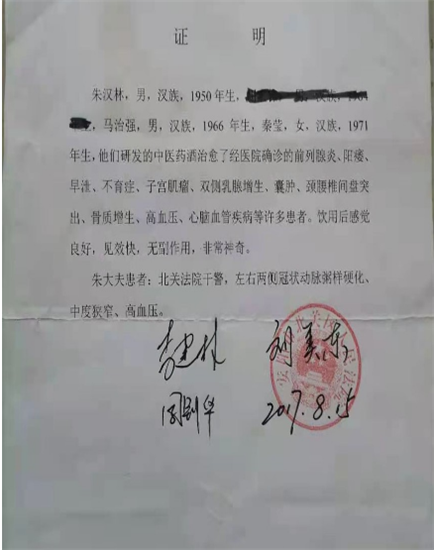 证 明
朱汉林，男，汉族，1950年生，
马治强，男，汉族，1966 年生，秦莹，女，汉族，1971
年生，他们研发的中医药酒治愈了经医院确诊的前列腺炎、阳痿、
早泄、不育症、子宫肌瘤、双侧乳腺增生、囊肿、颈腰椎间盘突
出、骨质增生、高血压、心脑血管疾病等许多患者。饮用后感觉
良好，见效快，无副作用，非常神奇。
朱大夫患者：北关法院干警，左右两侧冠状动脉粥样硬化、
中度狭窄、高血压。
李建林 刘美东
2017.8.15